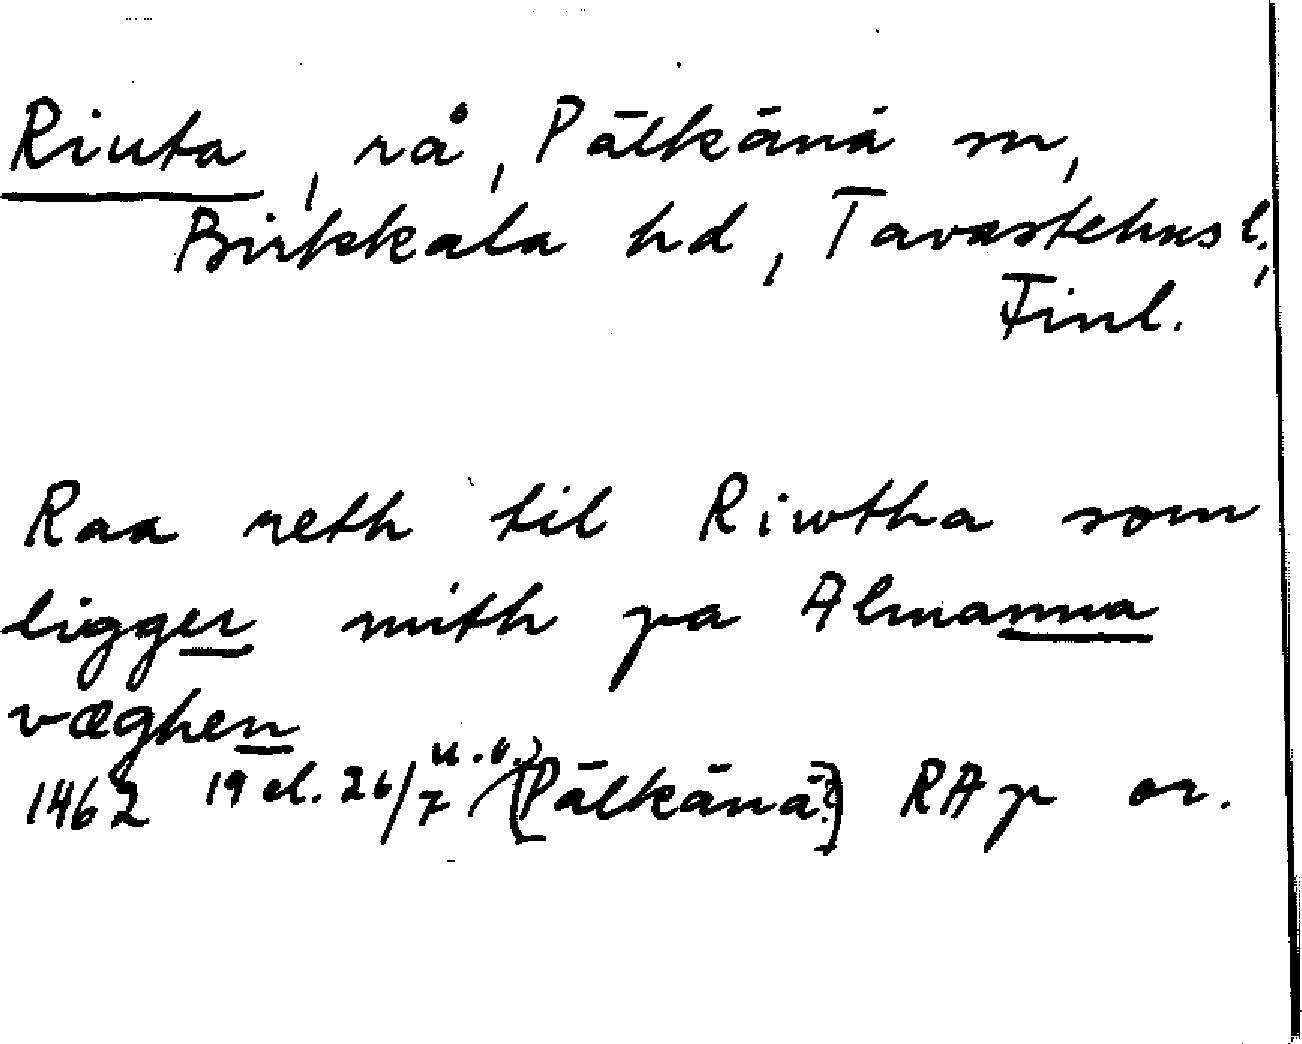 Riuta, rå, Pälkänä sn,
Birkkala hd, Tavastehus l.,
Finl.
Raa reth til Riwtha som
ligger mith pa Almanna
væghen
1462 19 el. 26/7 u.o. [Pälkänä?] RAp or.